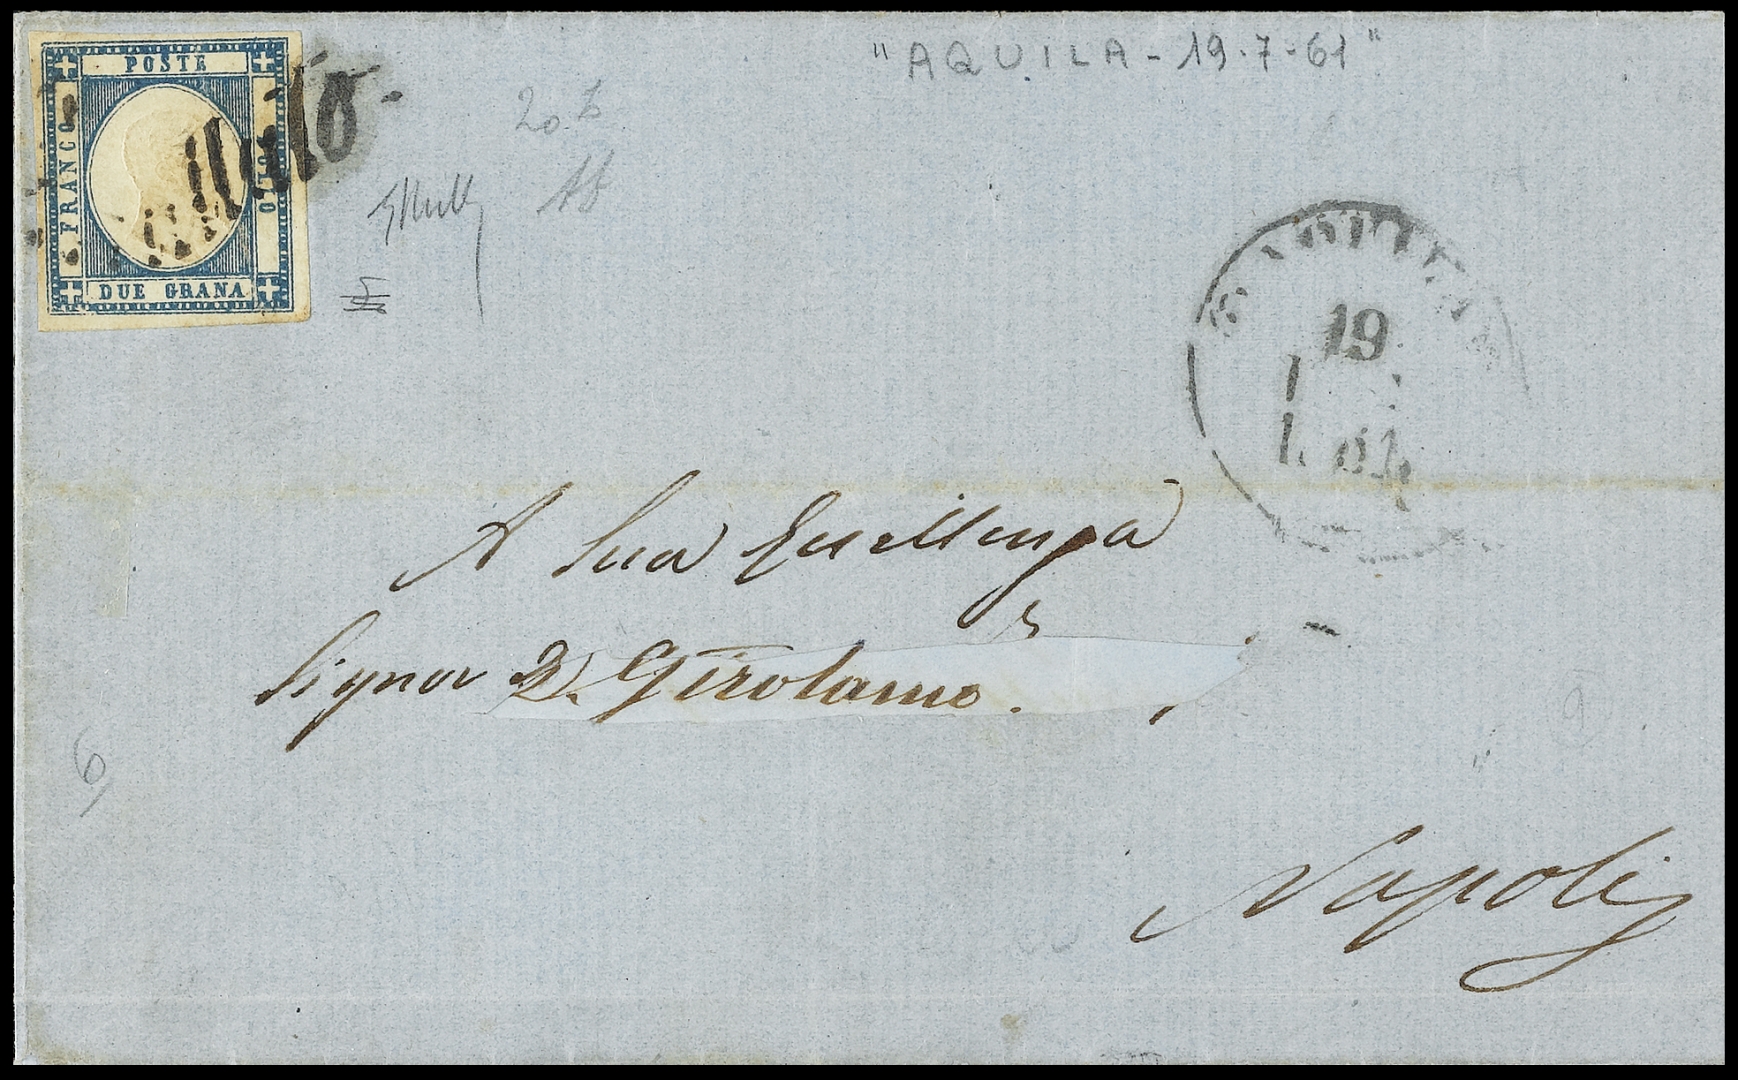 "AQUILA - 19·7-61"
POSTE
FRANCO
BOLLO
DUE GRANA
19
A Sua Eccellenza
Signor D. Girolamo
Napoli
6